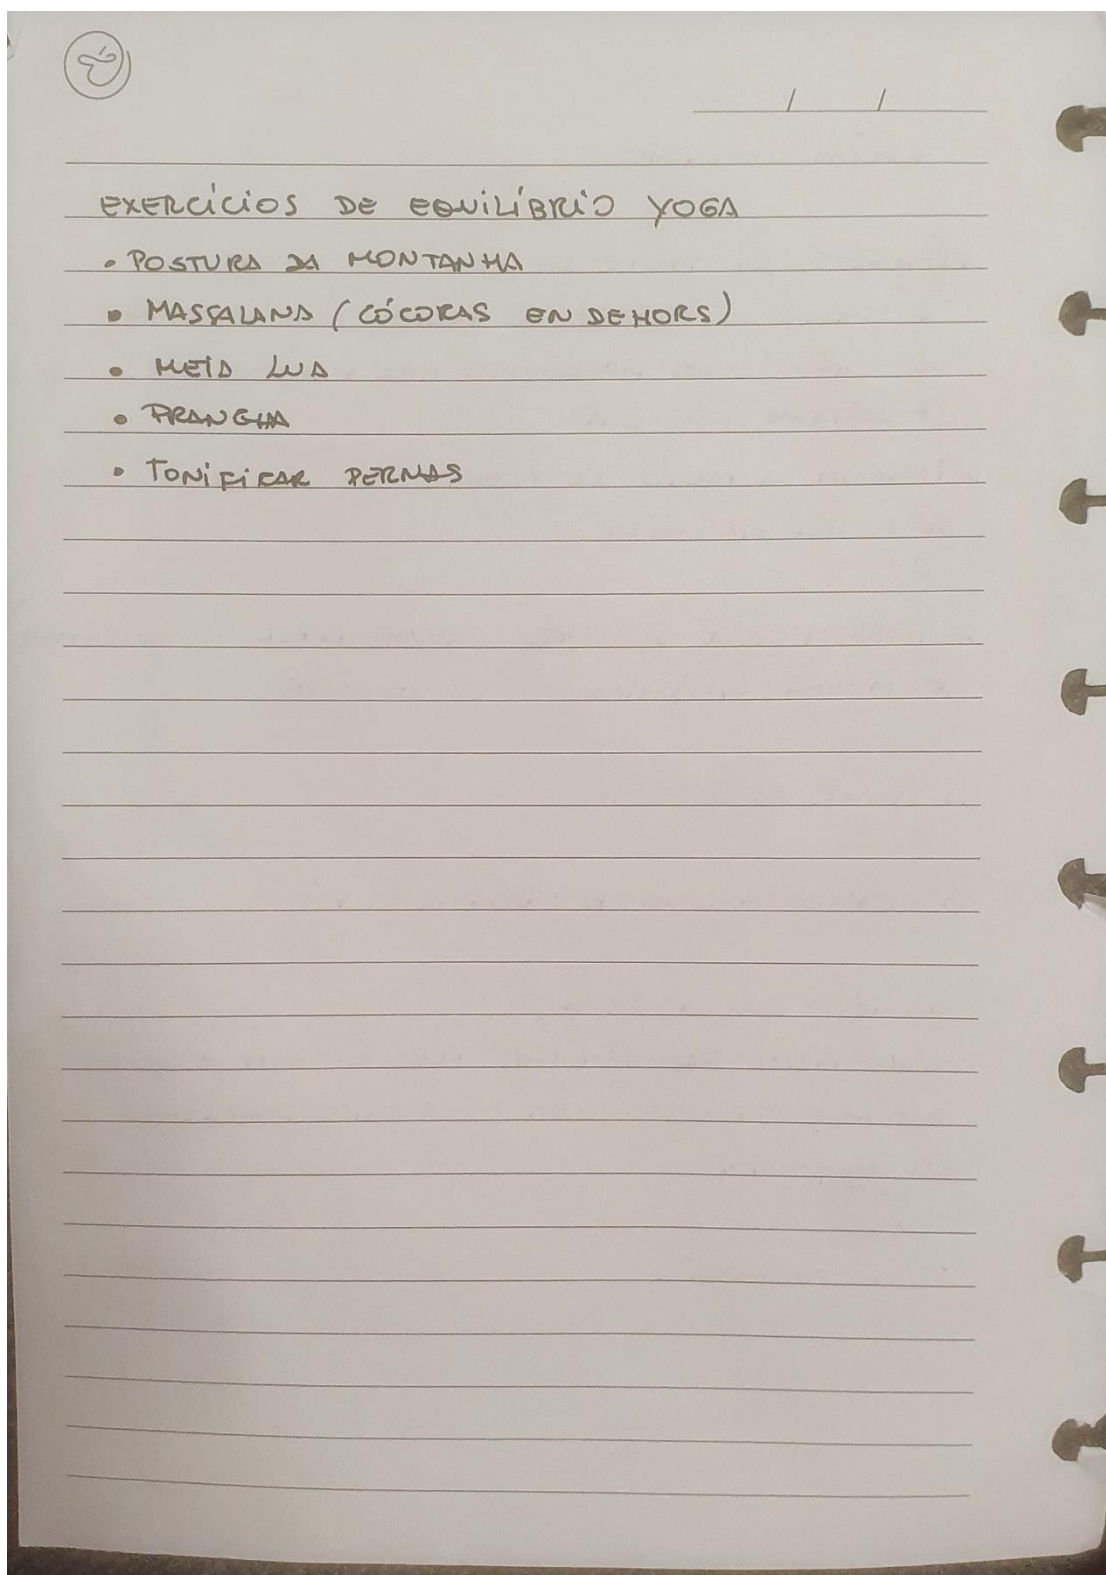 / /
EXERCÍCIOS DE EQUILÍBRIO YOGA
• POSTURA DA MONTANHA
• MASSALANA (CÓCORAS EN DEHORS)
• MEIA LUA
• PRANCHA
• TONIFICAR PERNAS